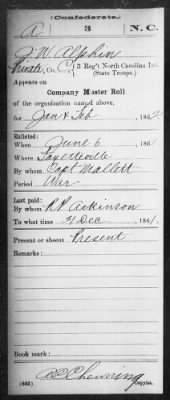 (Confederate.)
A 3 N.C.
W Alphin
Private, Co. C, 3 Reg't North Carolina Inf.
(State Troops.)
Appears on
Company Muster Roll
of the organization named above,
for Jan & Feb, 1862.
Enlisted:
When June 6, 1861
Where Fayetteville
By whom Capt Mallett
Period War
Last paid:
By whom R P Atkinson
To what time 31 Dec, 1861.
Present or absent Present
Remarks:
Book mark:
Chewning
(642) Copyist.